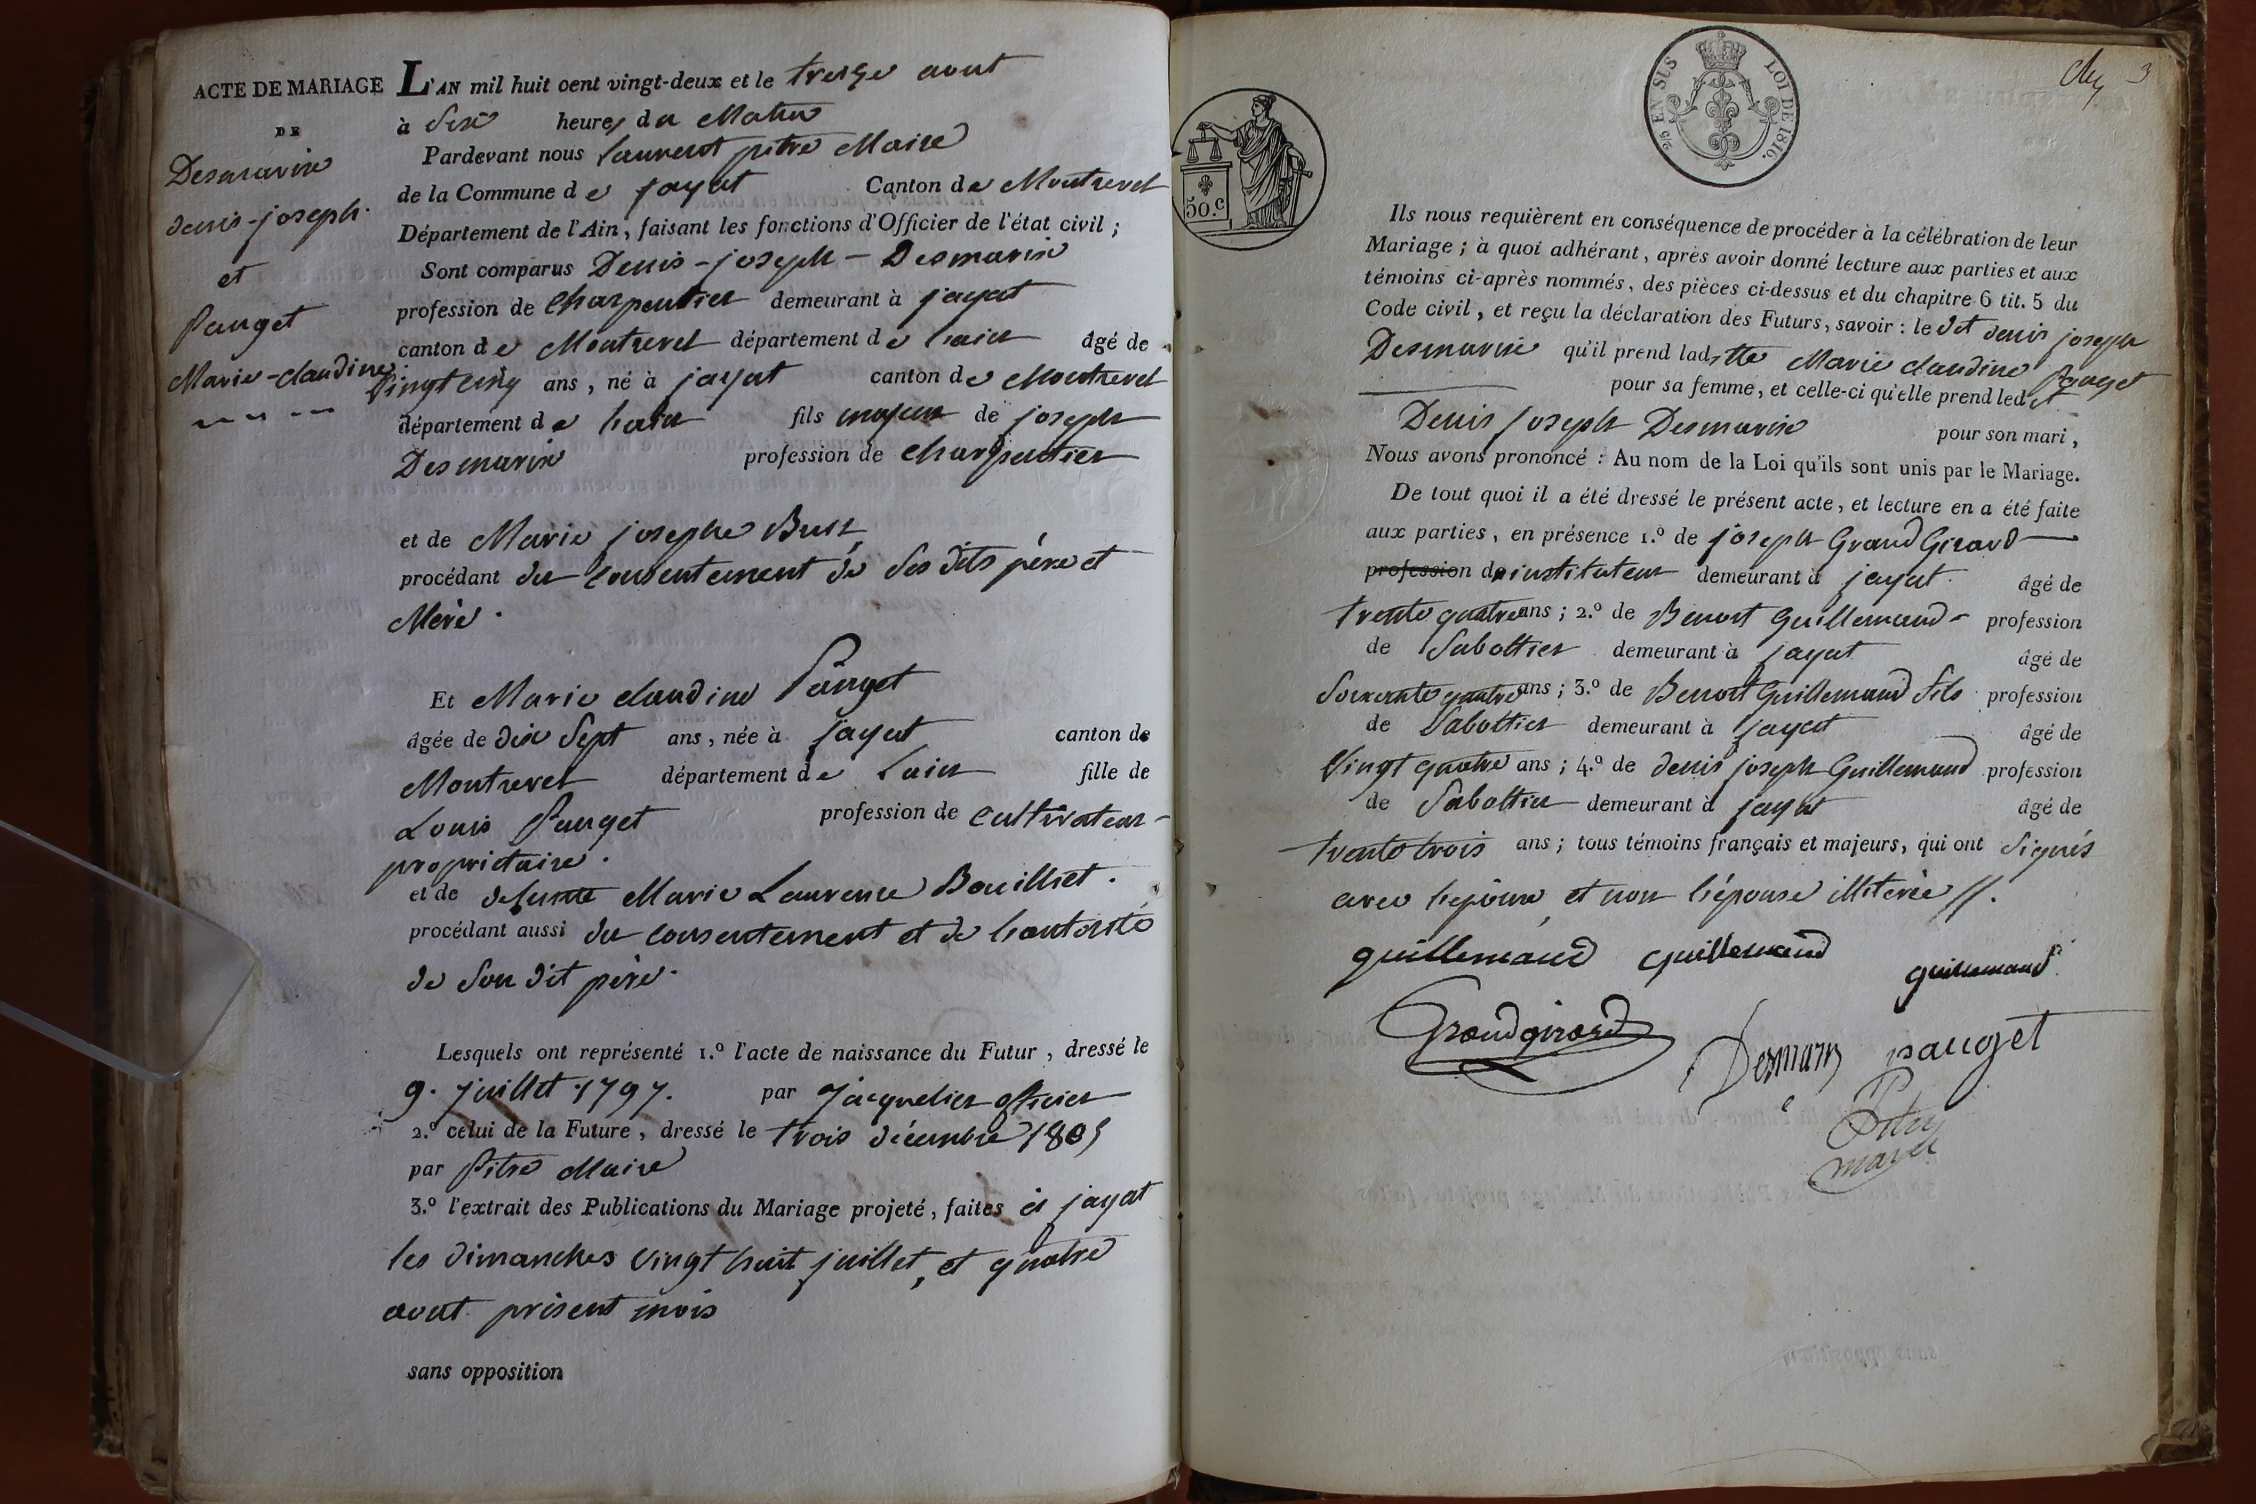 ACTE DE MARIAGE
DE
Desmaris
denis-joseph.
et
Pauget
Marie-claudine
L'AN mil huit cent vingt-deux et le treize aout
à Six heures du Matin
Pardevant nous laurent pitre Maire
de la Commune de jayat Canton de Montrevel
Département de l'Ain, faisant les fonctions d'Officier de l'état civil ;
Sont comparus Denis-joseph-Desmaris
profession de charpentier demeurant à jayat
canton de Montrevel département de lain âgé de
vingt cinq ans, né à jayat canton de Montrevel
département de lain fils majeur de joseph
Desmaris profession de charpentier
et de Marie josephe Buet
procédant du consentement de ses dits père et
Mère.
Et Marie claudine Pauget
âgée de dix Sept ans, née à jayat canton de
Montrevel département de Lain fille de
Louis Pauget profession de cultivateur-
propriétaire.
et de defunte Marie Laurence Bouilliet.
procédant aussi du consentement et de lautorité
de Son dit père.
Lesquels ont représenté 1.º l'acte de naissance du Futur, dressé le
9. juillet 1797. par jacquelier officier
2.º celui de la Future, dressé le trois décembre 1805
par Pitre Maire
3.º l'extrait des Publications du Mariage projeté, faites à jayat
les dimanches vingt huit juillet, et quatre
aout présent mois
sans opposition
50.C
25 EN SUS LOI DE 1816.
3
Ils nous requièrent en conséquence de procéder à la célébration de leur
Mariage ; à quoi adhérant, après avoir donné lecture aux parties et aux
témoins ci-après nommés, des pièces ci-dessus et du chapitre 6 tit. 5 du
Code civil, et reçu la déclaration des Futurs, savoir : le dit denis joseph
Desmaris qu'il prend ladtte Marie claudine Pauget
pour sa femme, et celle-ci qu'elle prend ledit
Denis joseph Desmaris pour son mari,
Nous avons prononcé : Au nom de la Loi qu'ils sont unis par le Mariage.
De tout quoi il a été dressé le présent acte, et lecture en a été faite
aux parties, en présence 1.º de joseph Grand Girard
profession de instituteur demeurant à jayat. âgé de
trente quatre ans ; 2.º de Benoit Guillemaud - profession
de Sabottier demeurant à jayat âgé de
Soixante quatre ans ; 3.º de Benoit Guillemaud fils profession
de Sabottier demeurant à jayat âgé de
Vingt quatre ans ; 4.º de denis joseph Guillemaud profession
de Sabottier demeurant à jayat âgé de
trente trois ans ; tous témoins français et majeurs, qui ont signés
avec lepoux, et non lépouse illitérée //.
guillemaud guillemaud guillemaud
Grandgirard Desmaris pauget
Pitre
maire